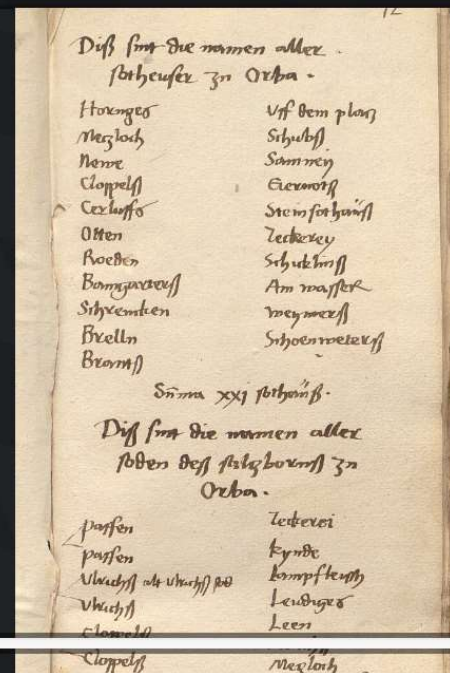 12
Diß sint die namen aller
sotheuser zu Orba.
Horniges
Metzloch
Newe
Cloppelß
Cerluffs
Otten
Roeden
Bomgarterß
Schrencken
Brelln
Brantß
Uff dem platz
Schubß
Samney
Steinsothauß
Zeckerey
Schicklinß
Am wasser
Weymerß
Schoenweterß
Summa xxj sothauß.
Diß sint die namen aller
soden deß saltzbornß zu
Orba.
Paffen
Paffen
Ulrichß alt Ulrichß sod
Ulrichß
Clowelß
Cloppelß
Zeckerei
Kynde
Lampfleisch
Leudiges
Leen
Metzloch